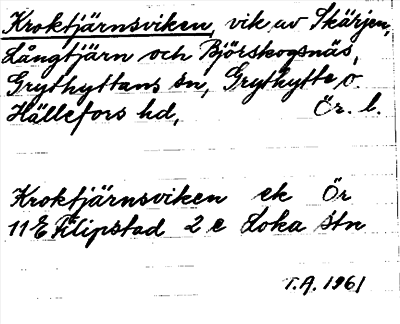 Kroktjärnsviken, vik av Skärjen,
Långtjärn och Björskogsnäs,
Grythyttans sn, Grythytte o.
Hällefors hd, Ör. l.
Kroktjärnsviken ek Ör
11 E Filipstad 2 e Loka stn
T.A. 1961